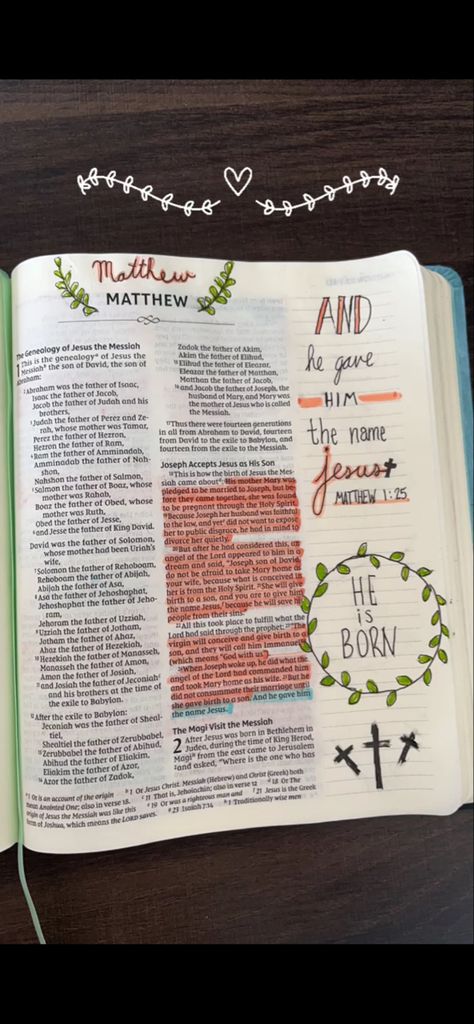 Matthew
MATTHEW
The Genealogy of Jesus the Messiah
1 This is the genealogy a of Jesus the
Messiah b the son of David, the son of
Abraham:
2 Abraham was the father of Isaac,
Isaac the father of Jacob,
Jacob the father of Judah and his
brothers,
3 Judah the father of Perez and Ze-
rah, whose mother was Tamar,
Perez the father of Hezron,
Hezron the father of Ram,
4 Ram the father of Amminadab,
Amminadab the father of Nah-
shon,
Nahshon the father of Salmon,
5 Salmon the father of Boaz, whose
mother was Rahab,
Boaz the father of Obed, whose
mother was Ruth,
Obed the father of Jesse,
6 and Jesse the father of King David.
David was the father of Solomon,
whose mother had been Uriah's
wife,
7 Solomon the father of Rehoboam,
Rehoboam the father of Abijah,
Abijah the father of Asa,
8 Asa the father of Jehoshaphat,
Jehoshaphat the father of Jeho-
ram,
Jehoram the father of Uzziah,
9 Uzziah the father of Jotham,
Jotham the father of Ahaz,
Ahaz the father of Hezekiah,
10 Hezekiah the father of Manasseh,
Manasseh the father of Amon,
Amon the father of Josiah,
11 and Josiah the father of Jeconiah c
and his brothers at the time of
the exile to Babylon.
12 After the exile to Babylon:
Jeconiah was the father of Sheal-
tiel,
Shealtiel the father of Zerubbabel,
13 Zerubbabel the father of Abihud,
Abihud the father of Eliakim,
Eliakim the father of Azor,
14 Azor the father of Zadok,
Zadok the father of Akim,
Akim the father of Elihud,
15 Elihud the father of Eleazar,
Eleazar the father of Matthan,
Matthan the father of Jacob,
16 and Jacob the father of Joseph, the
husband of Mary, and Mary was
the mother of Jesus who is called
the Messiah.
17 Thus there were fourteen generations
in all from Abraham to David, fourteen
from David to the exile to Babylon, and
fourteen from the exile to the Messiah.
Joseph Accepts Jesus as His Son
18 This is how the birth of Jesus the Mes-
siah came about d: His mother Mary was
pledged to be married to Joseph, but be-
fore they came together, she was found
to be pregnant through the Holy Spirit.
19 Because Joseph her husband was faithful
to the law, and yet e did not want to expose
her to public disgrace, he had in mind to
divorce her quietly.
20 But after he had considered this, an
angel of the Lord appeared to him in a
dream and said, "Joseph son of David,
do not be afraid to take Mary home as
your wife, because what is conceived in
her is from the Holy Spirit. 21 She will give
birth to a son, and you are to give him
the name Jesus, f because he will save his
people from their sins."
22 All this took place to fulfill what the
Lord had said through the prophet: 23 "The
virgin will conceive and give birth to a
son, and they will call him Immanuel" g
(which means "God with us").
24 When Joseph woke up, he did what the
angel of the Lord had commanded him
and took Mary home as his wife. 25 But he
did not consummate their marriage until
she gave birth to a son. And he gave him
the name Jesus.
The Magi Visit the Messiah
2 After Jesus was born in Bethlehem in
Judea, during the time of King Herod,
Magi h from the east came to Jerusalem
2 and asked, "Where is the one who has
a 1 Or is an account of the origin b 1 Or Jesus Christ. Messiah (Hebrew) and Christ (Greek) both
mean Anointed One; also in verse 18. c 11 That is, Jehoiachin; also in verse 12 d 18 Or The
origin of Jesus the Messiah was like this e 19 Or was a righteous man and f 21 Jesus is the Greek
form of Joshua, which means the LORD saves. g 23 Isaiah 7:14 h 1 Traditionally wise men
AND
he gave
HIM
the name
Jesus
MATTHEW 1:25
HE
is
BORN